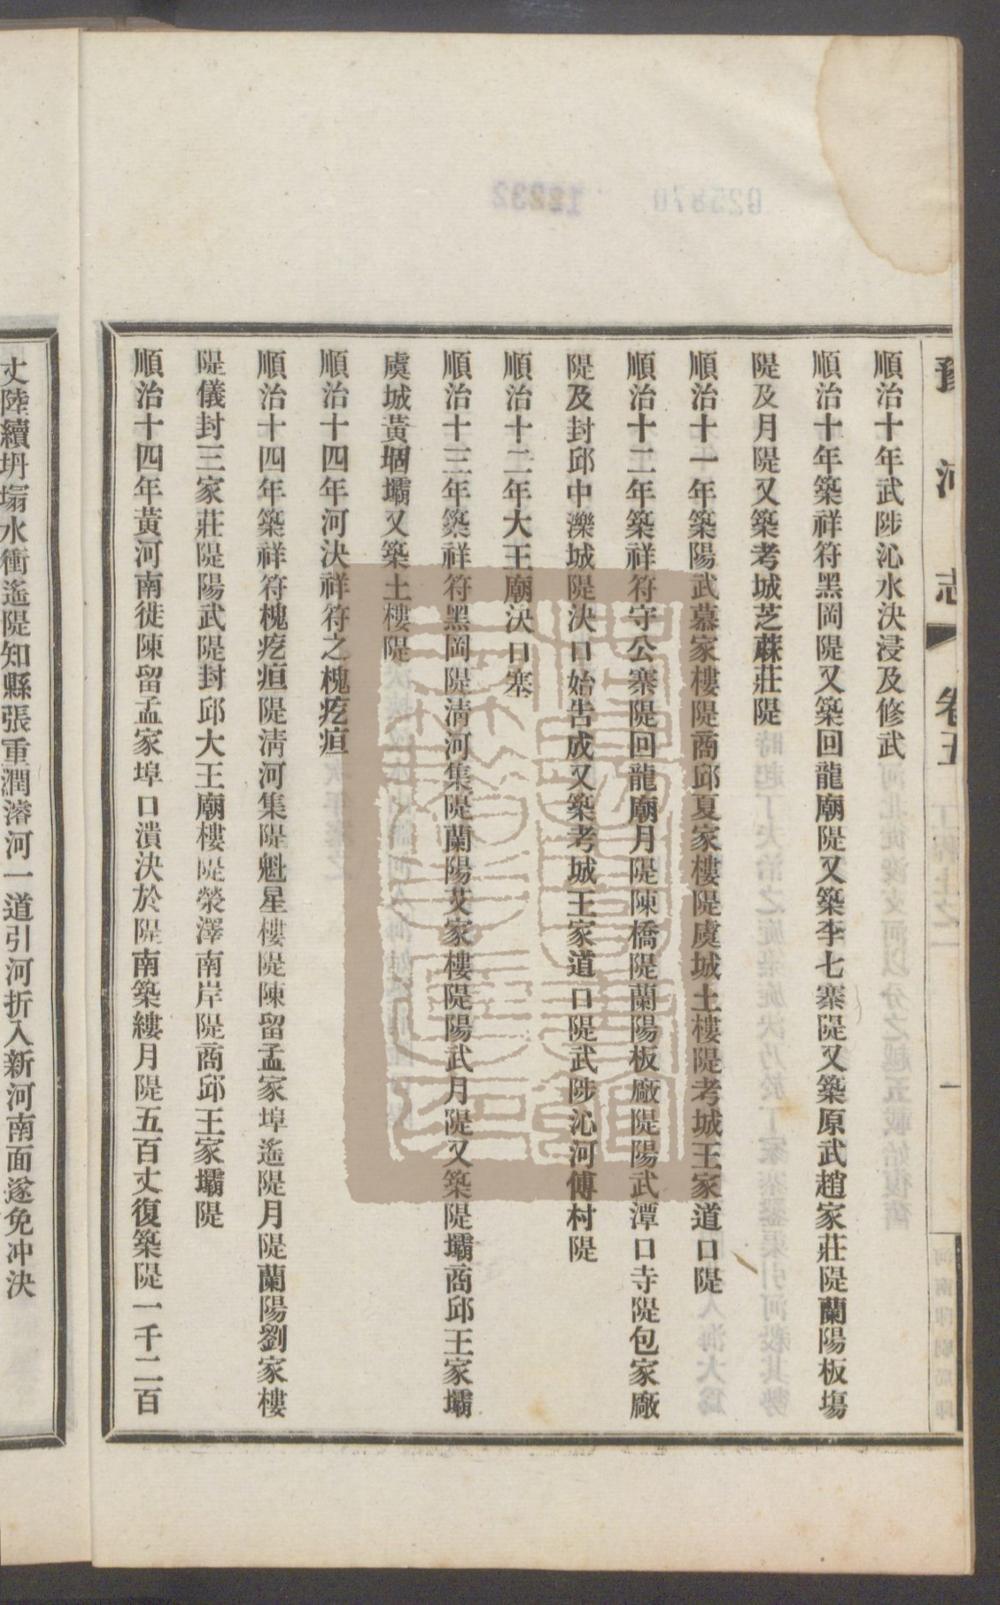 豫河志 卷五 一
順治十年武陟沁水決浸及修武
順治十年築祥符黑岡隄又築回龍廟隄又築李七寨隄又築原武趙家莊隄蘭陽板塲
隄及月隄又築考城芝蔴莊隄
順治十一年築陽武慕家樓隄商邱夏家樓隄虞城土樓隄考城王家道口隄
順治十二年築祥符守公寨隄回龍廟月隄陳橋隄蘭陽板廠隄陽武潭口寺隄包家廠
隄及封邱中灤城隄決口始告成又築考城王家道口隄武陟沁河傅村隄
順治十二年大王廟決口塞
順治十三年築祥符黑岡隄清河集隄蘭陽艾家樓隄陽武月隄又築隄壩商邱王家壩
虞城黃堌壩又築土樓隄
順治十四年河決祥符之槐疙疸
順治十四年築祥符槐疙疸隄清河集隄魁星樓隄陳留孟家埠遙隄月隄蘭陽劉家樓
隄儀封三家莊隄陽武隄封邱大王廟樓隄滎澤南岸隄商邱王家壩隄
順治十四年黃河南徙陳留孟家埠口潰決於隄南築縷月隄五百丈復築隄一千二百
丈陸續坍塌水衝遙隄知縣張重潤濬河一道引河折入新河南面遂免冲決